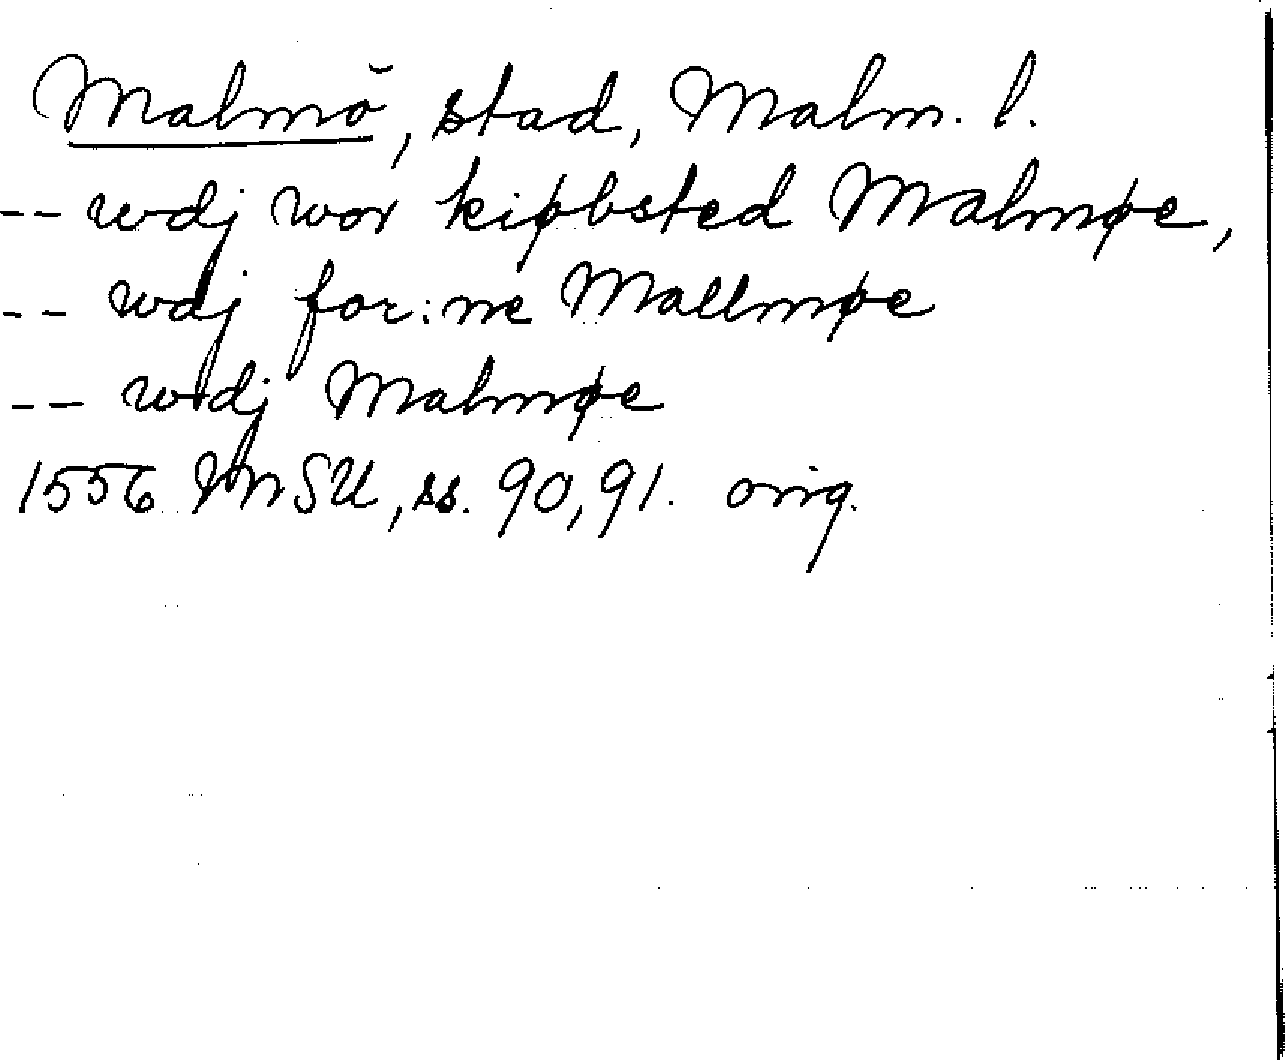 Malmö, stad, Malm. l.
-- wdj wor kiøbsted Malmøe,
-- wdj for:ne Mallmøe
-- wdj Malmøe
1556 MSU, ss. 90, 91. orig.